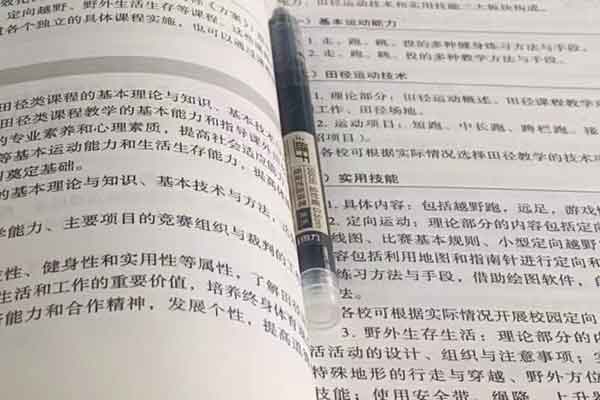 定向越野、野外生活生存等课程。这些
各个独立的具体课程实施，也可以通过
田径类课程的基本理论与知识、基本技术
田径类课程教学的基本能力和指导课外
的专业素养和心理素质，提高社会适应能力
等基本运动能力和生活生存能力，提高体
奠定基础。
的基本理论与知识、基本技术与方法，
学能力、主要项目的竞赛组织与裁判的工
性、健身性和实用性等属性，了解田径
生活和工作的重要价值，培养终身体育
能力和合作精神，发展个性，提高道
定向运动技术和实用技能三大板块构成。
）基本运动能力
1. 走、跑、跳、投的多种健身练习方法与手段。
2. 走、跑、跳、投的多种教学方法与手段。
）田径运动技术
1. 理论部分：田径运动概述、田径课程教学
工作、田径场地。
2. 运动项目：短跑、中长跑、跨栏跑、接
项目）。
各校可根据实际情况选择田径教学的技术项
）实用技能
1. 具体内容：包括越野跑，远足，游戏
2. 定向运动：理论部分的内容包括定
线图、比赛基本规则、小型定向越野
容包括利用地图和指南针进行定向和
练习方法与手段，借助绘图软件，自
法。
各校可根据实际情况开展校园定向
3. 野外生存生活：理论部分的内
活活动的设计、组织与注意事项；实
特殊地形的行走与穿越、野外方位
技能；使用安全带、绳降、上升器